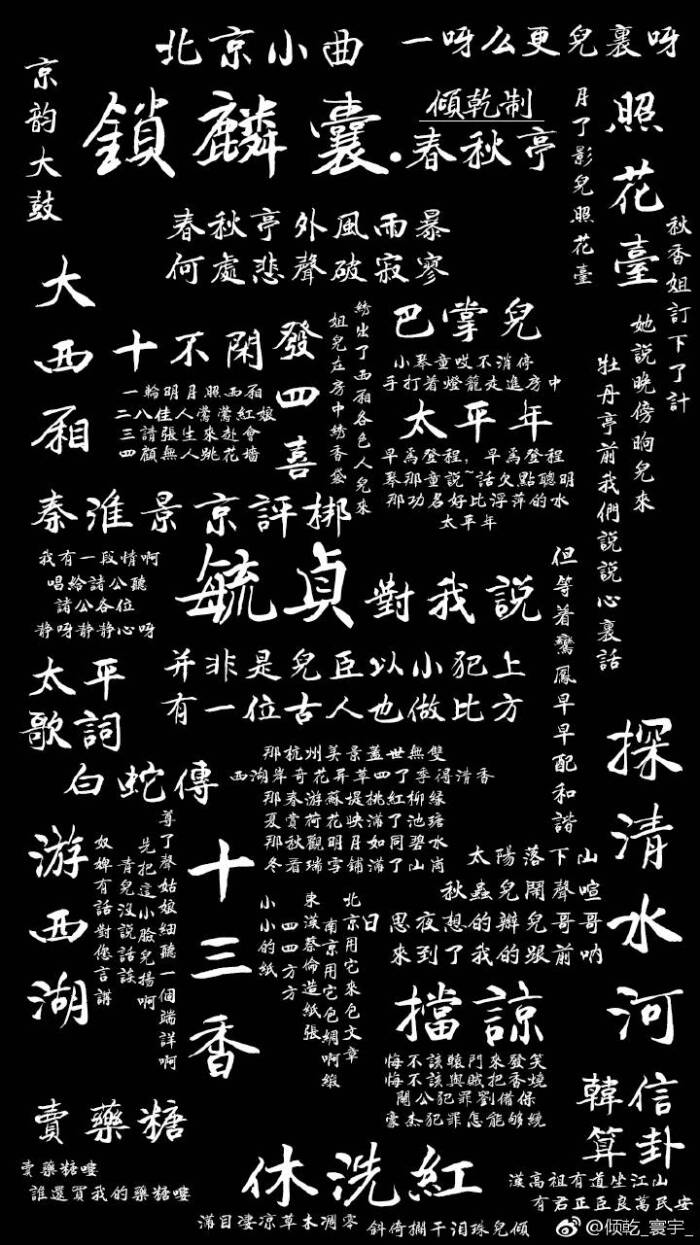 北京小曲
一呀么更兒裏呀
京韵大鼓
鎖麟囊·春秋亭
傾乾制
照花臺
月了影兒照花臺
秋香姐訂下了計
她說晚傍晌兒來
牡丹亭前我們說說心裏話
但等着鸞鳳早早配和諧
春秋亭外風雨暴
何處悲聲破寂寥
大西厢
十不閑
一輪明月照西厢
二八佳人鶯鶯紅娘
三請張生來赴會
四顧無人跳花墙
發四喜
綉出了西厢各色人兒來
姐兒在房中綉香袋
巴掌兒
小琴童哎不消停
手打着燈籠走進房中
太平年
早爲登程，早爲登程
琴那童說~話欠點聰明
那功名好比浮萍的水
太平年
秦淮景京評梆
我有一段情啊
唱給諸公聽
諸公各位
静呀静静心呀
毓貞
對我說
并非是兒臣以小犯上
有一位古人也做比方
太平歌詞
白蛇傳
那杭州美景蓋世無雙
西湖岸奇花异草四了季得清香
那春游蘇堤桃紅柳緑
夏賞荷花映滿了池塘
那秋觀明月如同碧水
冬看瑞雪鋪滿了山崗
探清水河
太陽落下山
秋蟲兒鬧聲喧
日思夜想的辦兒哥哥
來到了我的跟前吶
游西湖
尊了聲姑娘細聽一個端詳啊
先把這小臉兒揚啊
青兒没說話談
奴婢有話對您言講
十三香
小小的紙
四四方方
東漢蔡倫造紙張
南京用它包綢啊緞
北京用它來包文章
擋諒
悔不該轅門來發笑
悔不該與賊把香燒
關公犯罪劉備保
豪杰犯罪怎能够繞
韓信算卦
漢高祖有道坐江山
有君正臣良萬民安
賣藥糖
賣藥糖嘍
誰還買我的藥糖嘍
休洗紅
滿目凄凉草木凋零
斜倚擱干泪珠兒傾
@傾乾_寰宇_